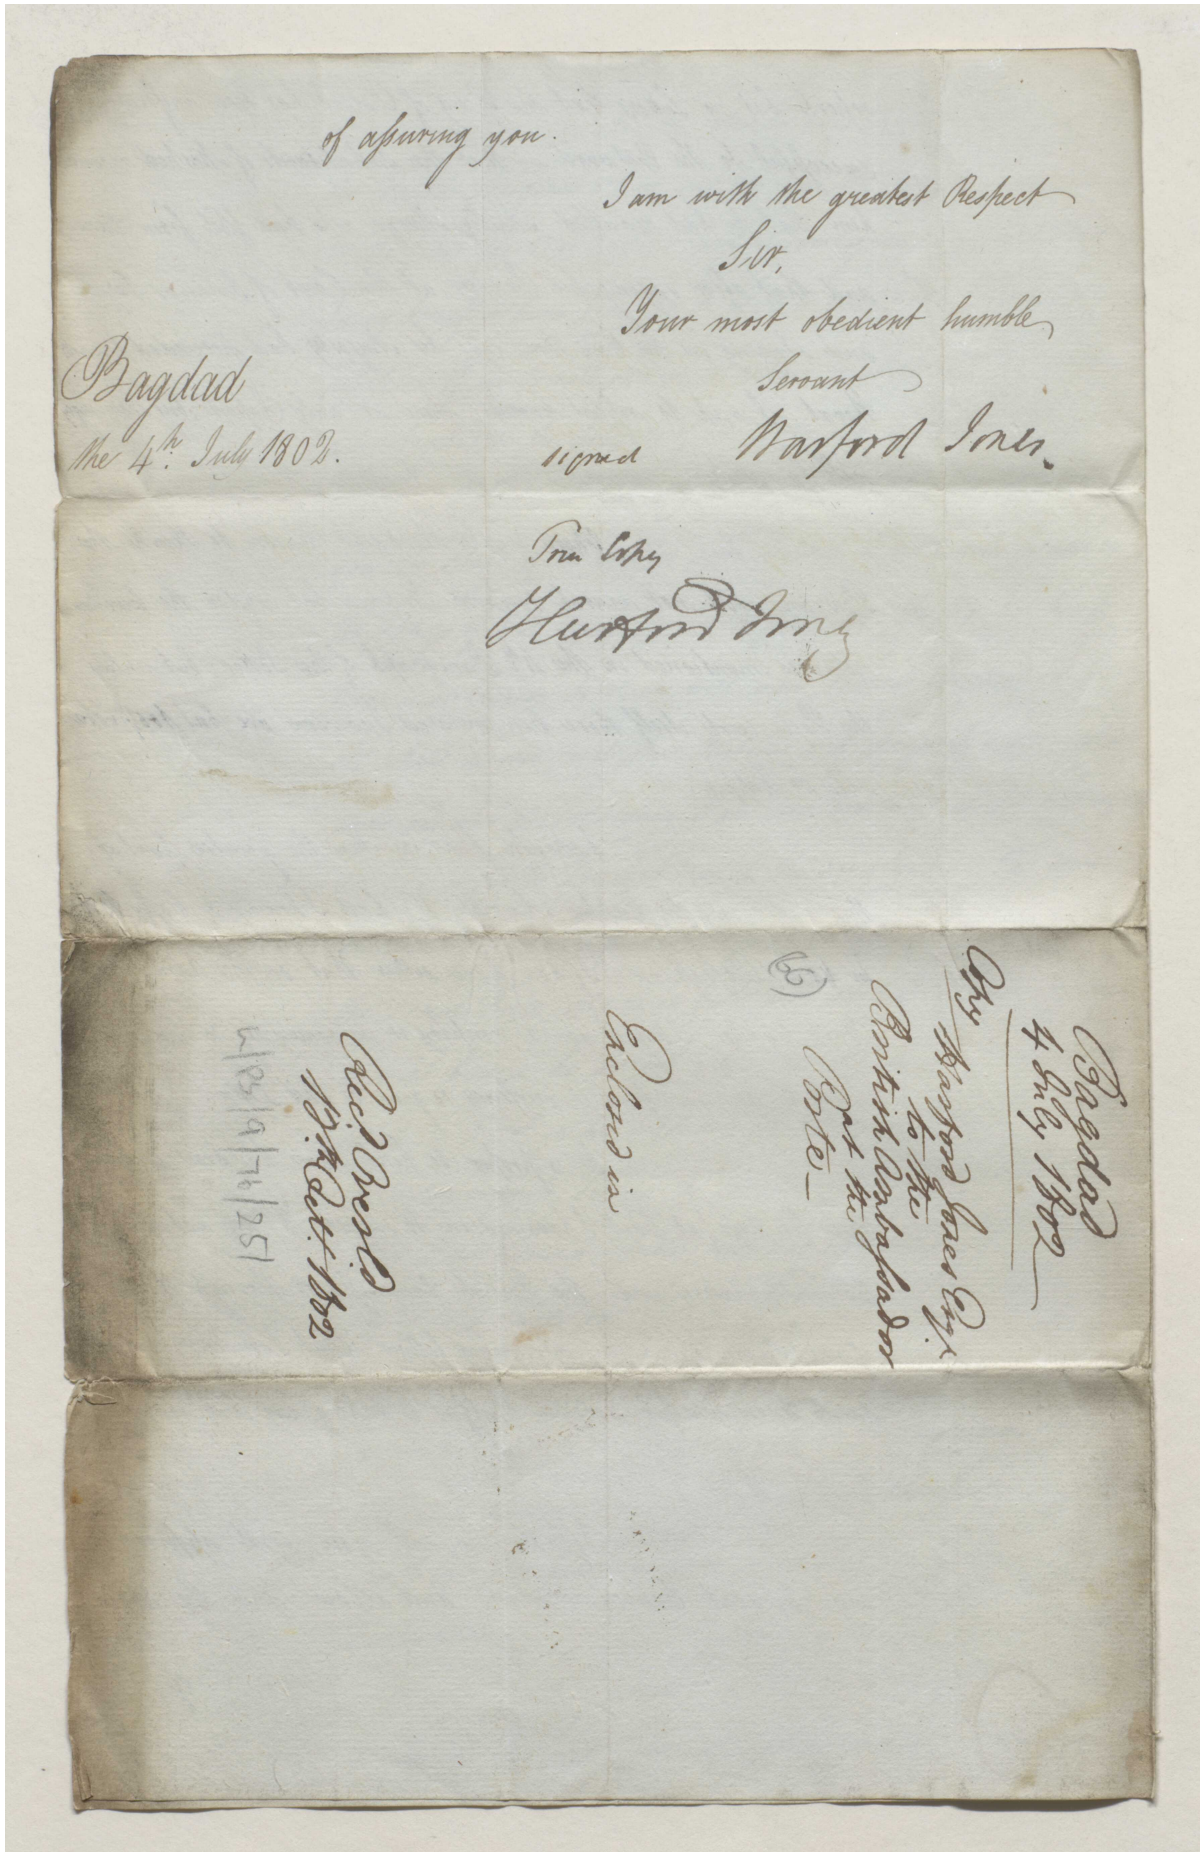 of assuring you.
I am with the greatest Respect
Sir,
Your most obedient humble
Servant
Bagdad
the 4th. July 1802.
signed Harford Jones.
True Copy
Harford Jones
Bagdad
4 July 1802
Copy
Harford Jones Esqr.
to the
British Ambassador
at the
Porte_
(6)
Enclosed in
Rec.d Overl.d
19th Oct.r 1802